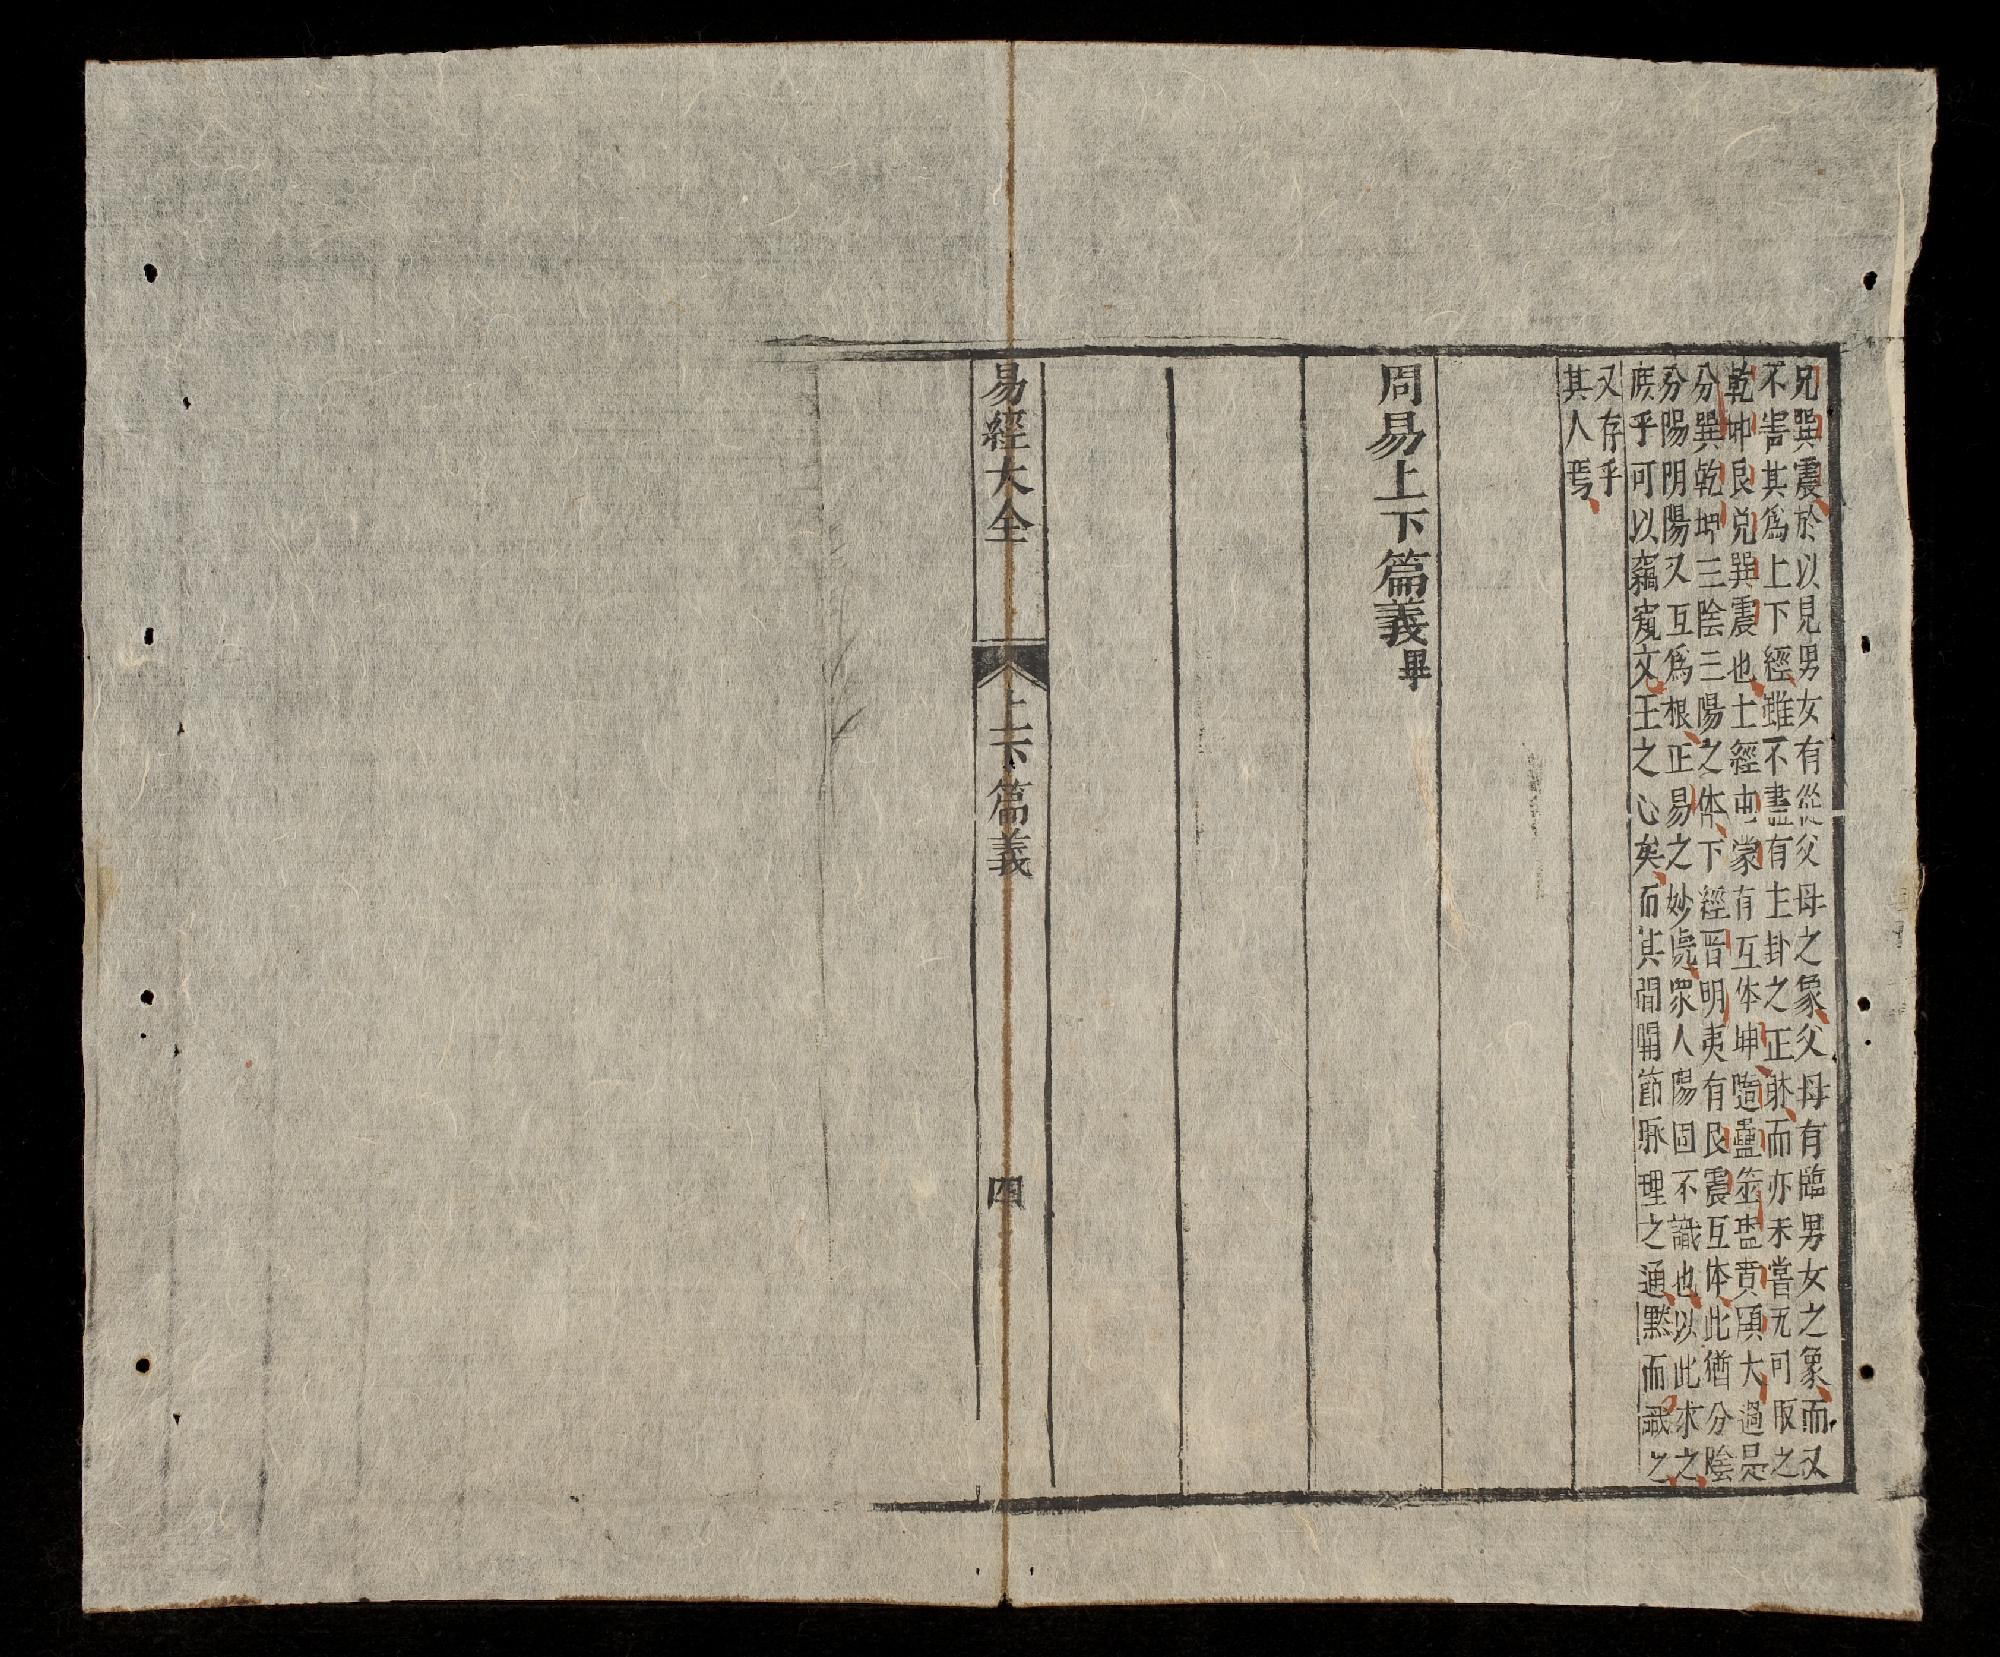 兄巽震於以見男女有從父母之象父母有臨男女之象而又
不害其爲上下經雖不盡有主卦之正躰而亦未嘗无可取之
乾坤艮兌巽震也上經屯蒙有互体坤隨蠱筮盍賁頤大過是
分巽乾坤三陰三陽之体下經晋明夷有艮震互体此猶分陰
分陽阴陽又互爲根正易之妙處衆人陽固不識也以此求之
庻乎可以窺寛文王之心矣而其間關節脉理之通黙而識之
又存乎
其人焉
周易上下篇義畢
易經大全
上下篇義
四